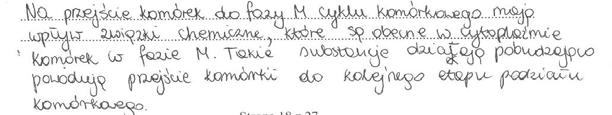 Na przejście komórek do fazy M cyklu komórkowego mają
wpływ związki chemiczne, które są obecne w cytoplazmie
komórek w fazie M. Takie substancje działają pobudzająco
powodują przejście komórki do kolejnego etapu podziału
komórkowego.